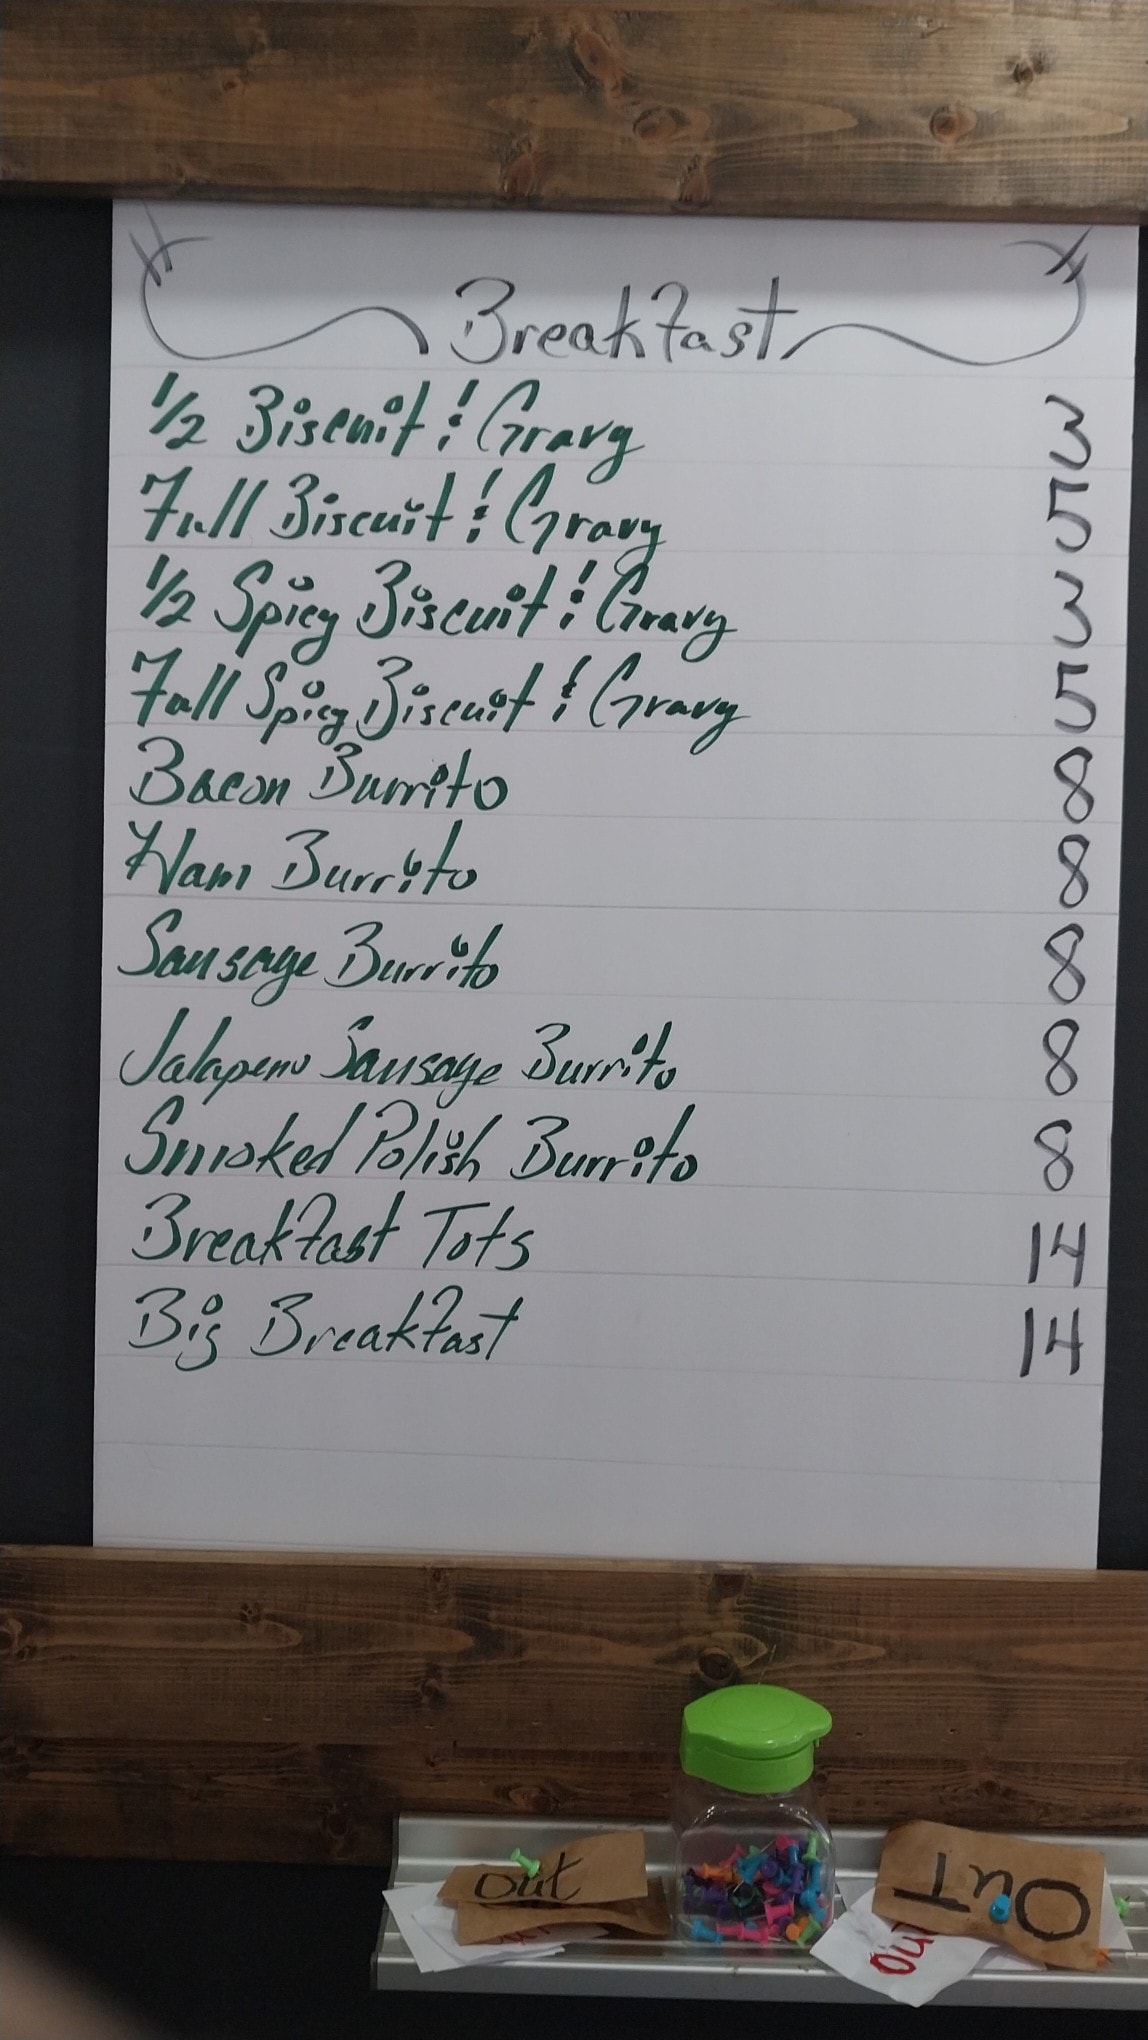 Breakfast
1/2 Biscuit & Gravy 3
Full Biscuit & Gravy 5
1/2 Spicy Biscuit & Gravy 3
Full Spicy Biscuit & Gravy 5
Bacon Burrito 8
Ham Burrito 8
Sausage Burrito 8
Jalapeno Sausage Burrito 8
Smoked Polish Burrito 8
Breakfast Tots 14
Big Breakfast 14
out
OuT
OUT